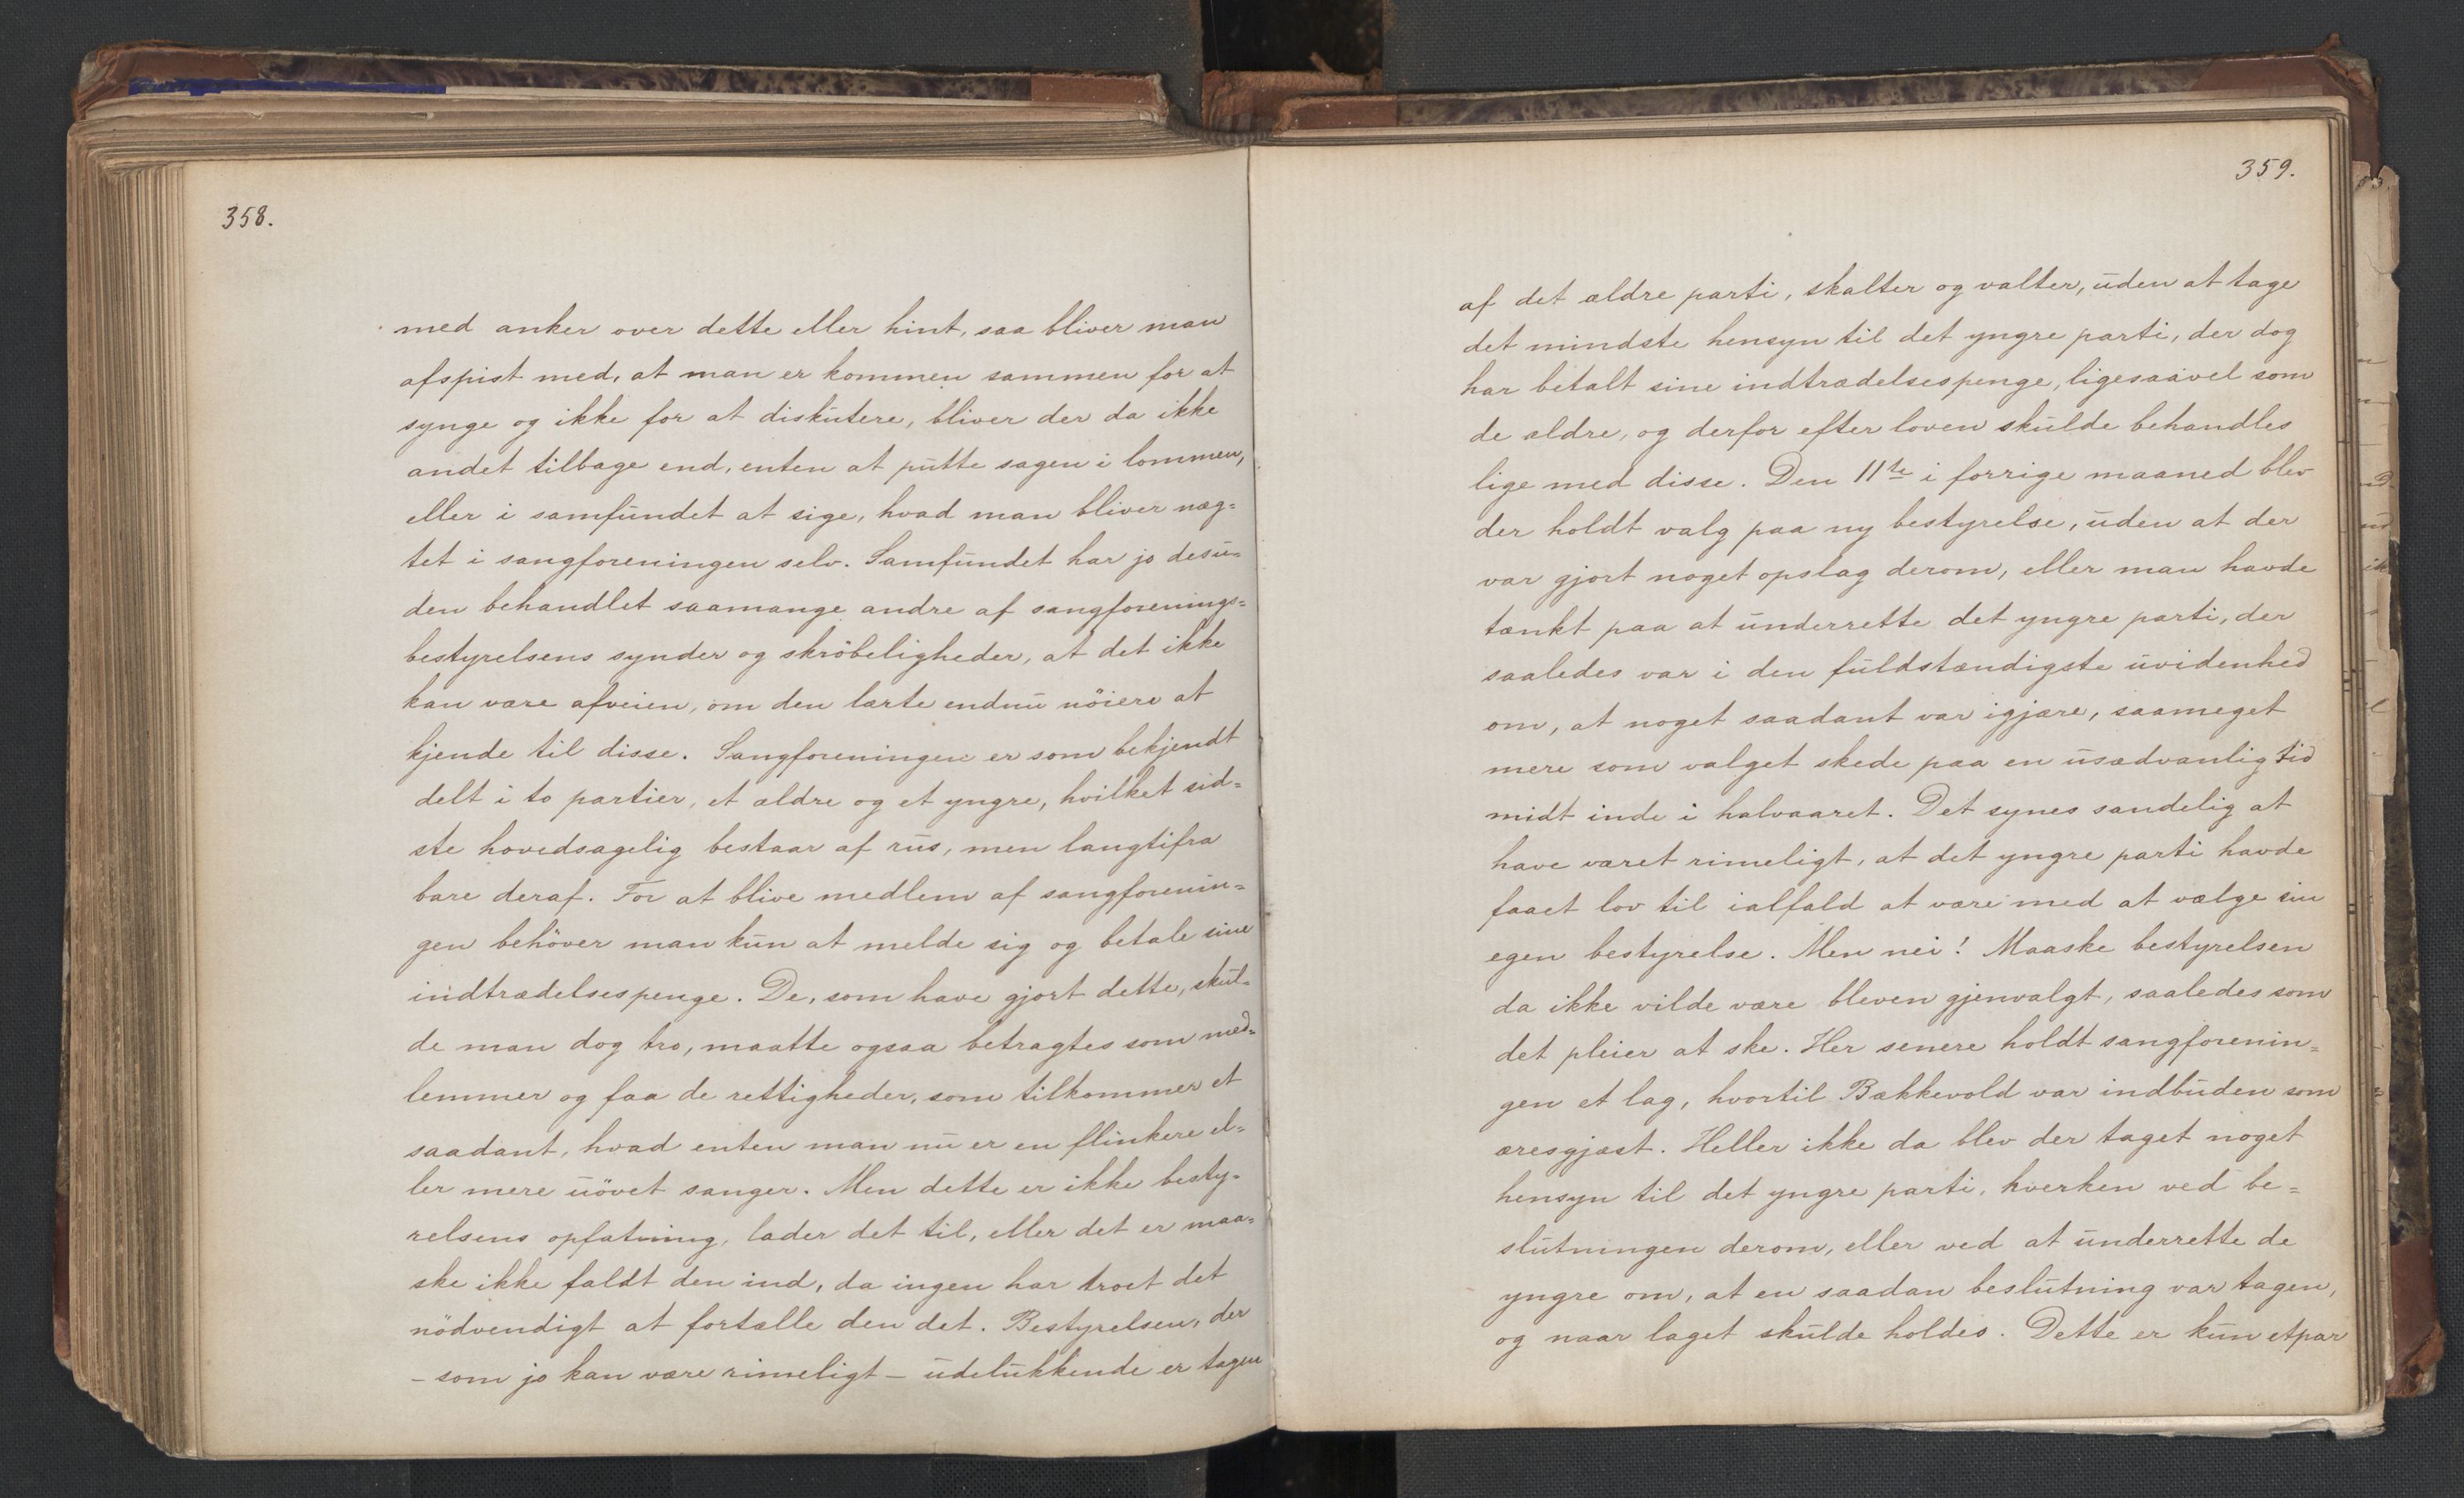 358.
med anker over dette eller hint, saa bliver man
afspist med, at man er kommen sammen for at
synge og ikke for at diskutere, bliver der da ikke
andet tilbage end, enten at putte sagen i lommen,
eller i samfundet at sige, hvad man bliver næg=
tet i sangforeningen selv. Samfundet har jo desu=
den behandlet saamange andre af sangforenings=
bestyrelsens synder og skröbeligheder, at det ikke
kan være afveien, om den lærte endnu nöiere at
kjende til disse. Sangforeningen er som bekjendt
delt i to partier, et ældre og et yngre, hvilket sid=
ste hovedsagelig bestaar af rus, men langtifra
bare deraf. For at blive medlem af sangforenin=
gen behöver man kun at melde sig og betale sine
indtrædelsespenge. De, som have gjort dette, skul=
de man dog tro, maatte ogsaa betragtes som med=
lemmer og faa de rettigheder, som tilkommer et
saadant, hvad enten man nu er en flinkere el=
ler mere uövet sanger. Men dette er ikke besty=
relsens opfatning, lader det til, eller det er maa=
ske ikke faldt den ind, da ingen har troet det
nödvendigt at fortælle den det. Bestyrelsen, der
– som jo kan være rimeligt – udelukkende er tagen
359.
af det ældre parti, skalter og valter, uden at tage
det mindste hensyn til det yngre parti, der dog
har betalt sine indtrædelsespenge, ligesaavel som
de ældre, og derfor efter loven skulde behandles
lige med disse. Den 11te i forrige maaned blev
der holdt valg paa ny bestyrelse, uden at der
var gjort noget opslag derom, eller man havde
tænkt paa at underrette det yngre parti, der
saaledes var i den fuldstændigste uvidenhed
om, at noget saadant var igjære, saameget
mere som valget skede paa en usædvanlig tid
midt inde i halvaaret. Det synes sandelig at
have været rimeligt, at det yngre parti havde
faaet lov til ialfald at være med at vælge sin
egen bestyrelse. Men nei! Maaske bestyrelsen
da ikke vilde være bleven gjenvalgt, saaledes som
det pleier at ske. Her senere holdt sangforenin=
gen et lag, hvortil Bækkevold var indbuden som
æresgjæst. Heller ikke da blev der taget noget
hensyn til det yngre parti, hverken ved be=
slutningen derom, eller ved at underrette de
yngre om, at en saadan beslutning var tagen,
og naar laget skulde holdes. Dette er kun etpar